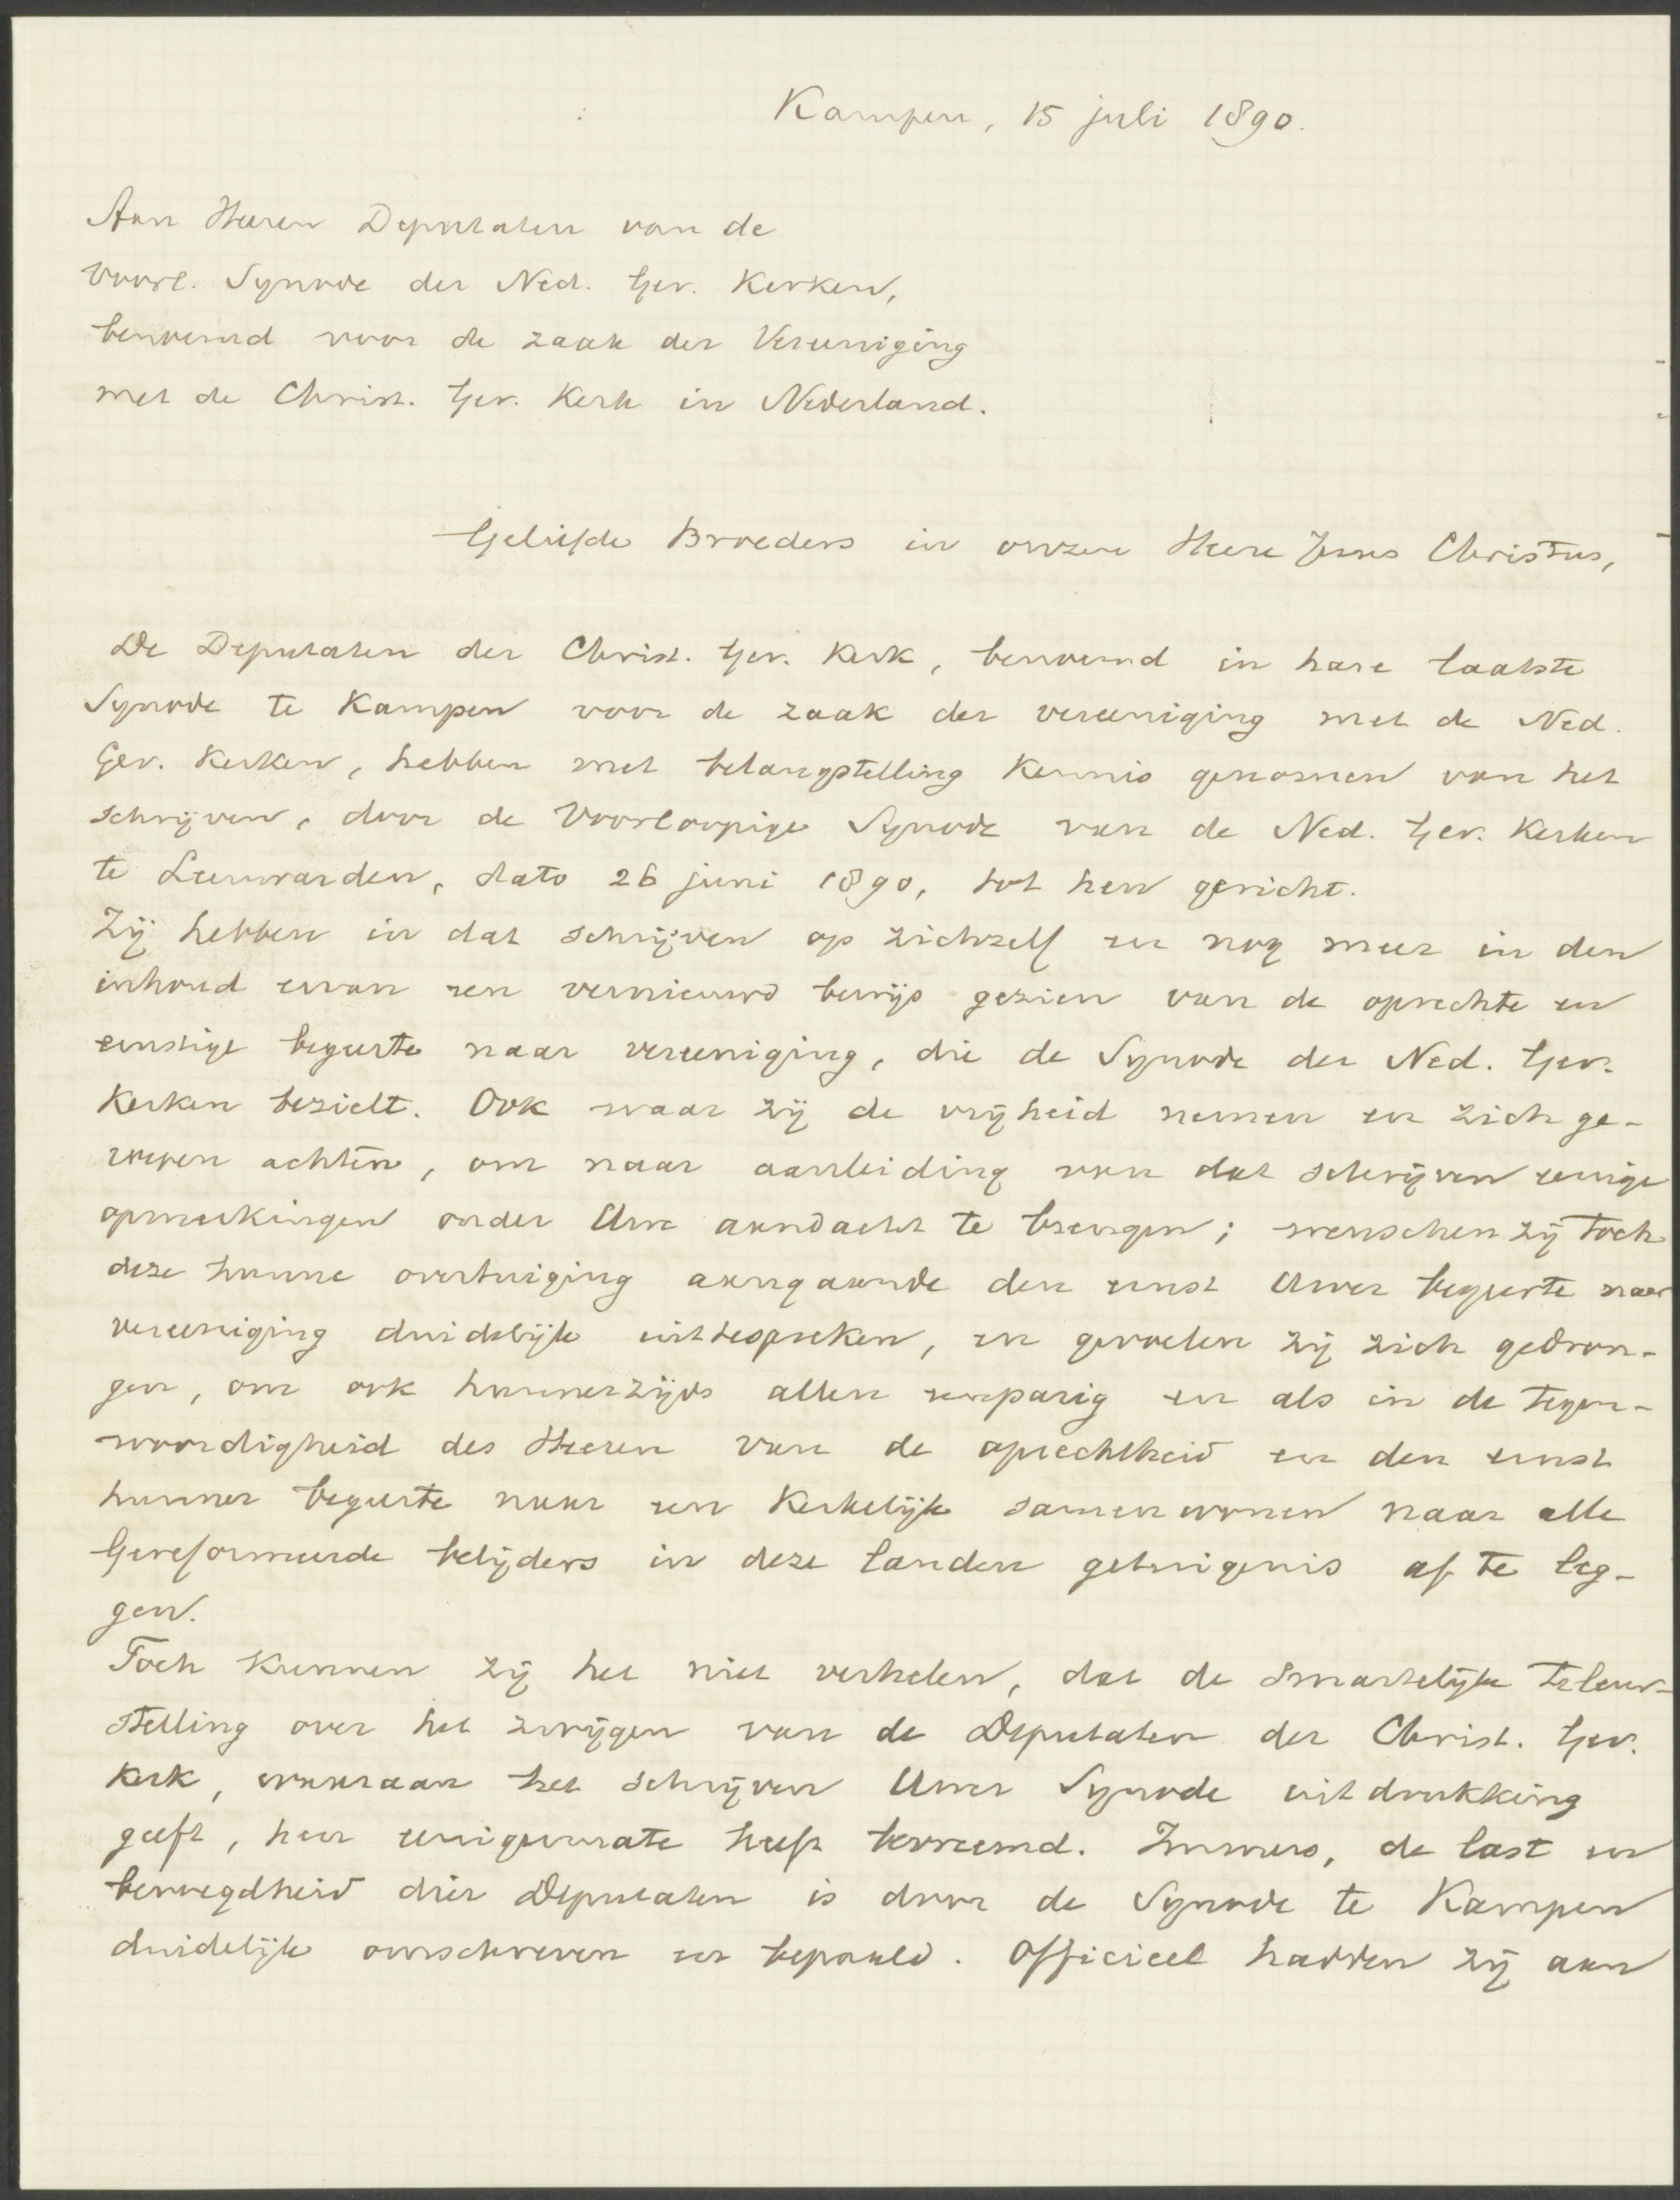 Kampen, 15 juli 1890.
Aan Heeren Deputaten van de
Voorl. Synode der Ned. Ger. Kerken,
benoemd voor de zaak der Vereeniging
met de Christ. Ger. Kerk in Nederland.
Geliefde Broeders in onzen Heere Jezus Christus,
De Deputaten der Christ. Ger. Kerk, benoemd in hare laatste
Synode te Kampen voor de zaak der vereeniging met de Ned.
Ger. Kerken, hebben met belangstelling kennis genomen van het
schrijven, door de Voorloopige Synode van de Ned. Ger. Kerken
te Leeuwarden, dato 26 juni 1890, tot hen gericht.
Zij hebben in dat schrijven op zichzelf en nog meer in den
inhoud ervan een vernieuwd bewijs gezien van de oprechte en
ernstige begeerte naar vereeniging, die de Synode der Ned. Ger.
Kerken bezielt. Ook waar zij de vrijheid nemen en zich ge-
roepen achten, om naar aanleiding van dat schrijven eenige
opmerkingen onder Uwe aandacht te brengen; wenschen zij toch
deze hunne overtuiging aangaande den ernst Uwer begeerte naar
vereeniging duidelijk uittespreken, en gevoelen zij zich gedron-
gen, om ook hunnerzijds allen eenparig en als in de tegen-
woordigheid des Heeren van de oprechtheid en den ernst
hunner begeerte naar een Kerkelijk samenwonen naar alle
Gereformeerde belijders in deze landen getuigenis af te leg-
gen.
Toch kunnen zij het niet verhelen, dat de smartelijke teleur-
stelling over het zwijgen van de Deputaten der Christ. Ger.
Kerk, waaraan het schrijven Uwer Synode uitdrukking
geeft, hen eenigermate heeft bevreemd. Immers, de last en
bevoegdheid dier Deputaten is door de Synode te Kampen
duidelijk omschreven en bepaald. Officieel hadden zij aan